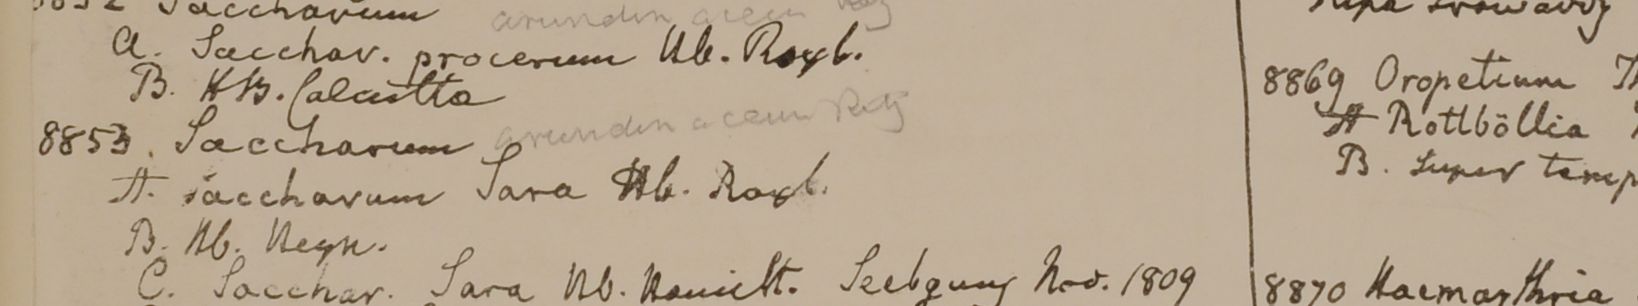 8852 Saccharum arundinaceum Retz
a. Sacchar. procerum Hb. Roxb.
B. HB. Calcutta
8853. Saccharum arundinaceum Retz
A. saccharum Sara Hb. Roxb.
B. Hb. Heyn.
C. Sacchar. Sara Hb. Hamilt. Nov. 1809
8869 Oropetium
A Rottböllia
B. super
8870 Haemarthria